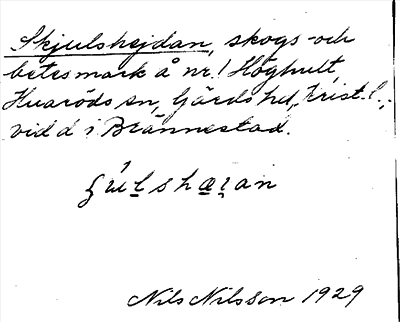 Skjulshejdan, skogs- och
betesmark å nr. 1 Höghult,
Huaröds sn, Gärds hd, Krist. l.,
vid d i Brännestad.
Nils Nilsson 1929